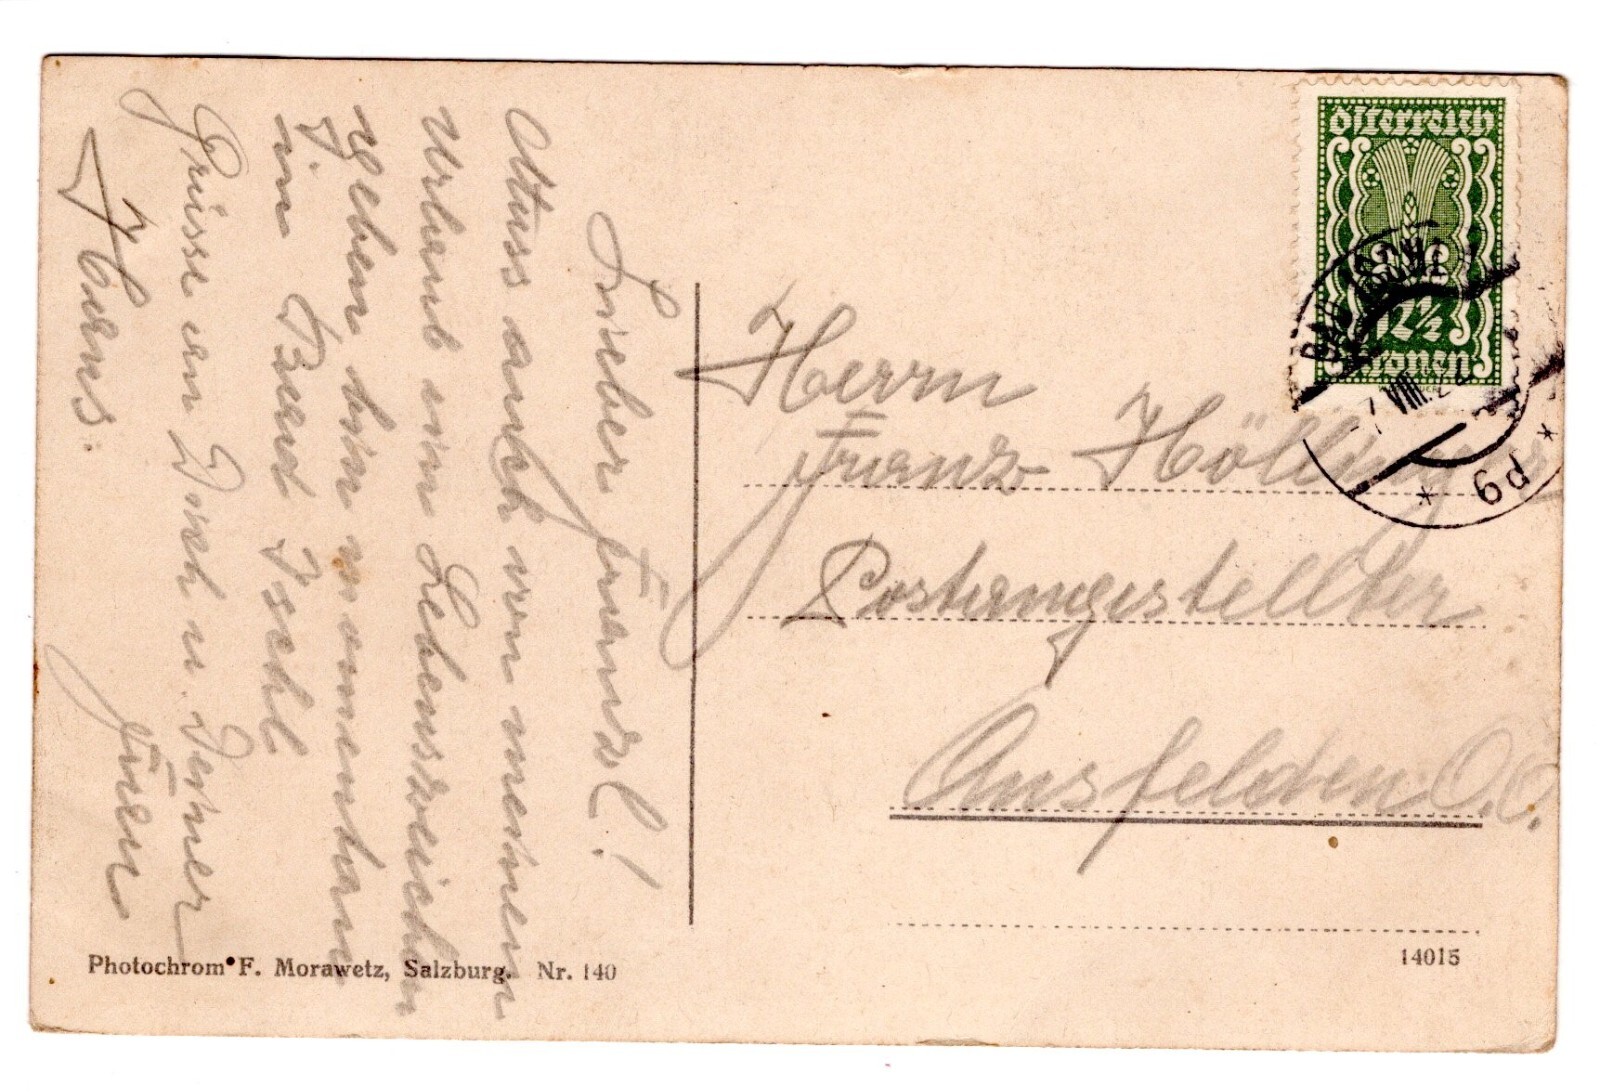 Lieber Franzl!
Muss auch von meinem
Urlaub ein Lebenszeichen
geben, bin momentan
in Bad Ischl
Grüsse an Dich u. Deiner
Frau
Hans.
Herrn
Franz Hölling
Postangestellter
Ansfelden O.Ö.
Österreich
12½
Kronen
BAD ISCHL 1
-7.VIII.22
* 9d *
Photochrom F. Morawetz, Salzburg. Nr. 140
14015